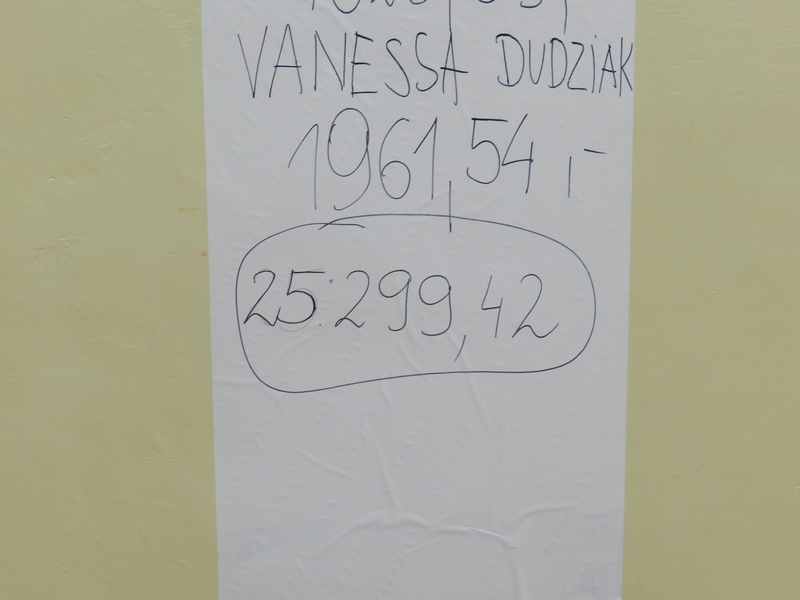 VANESSA DUDZIAK
1961,54,-
25.299,42